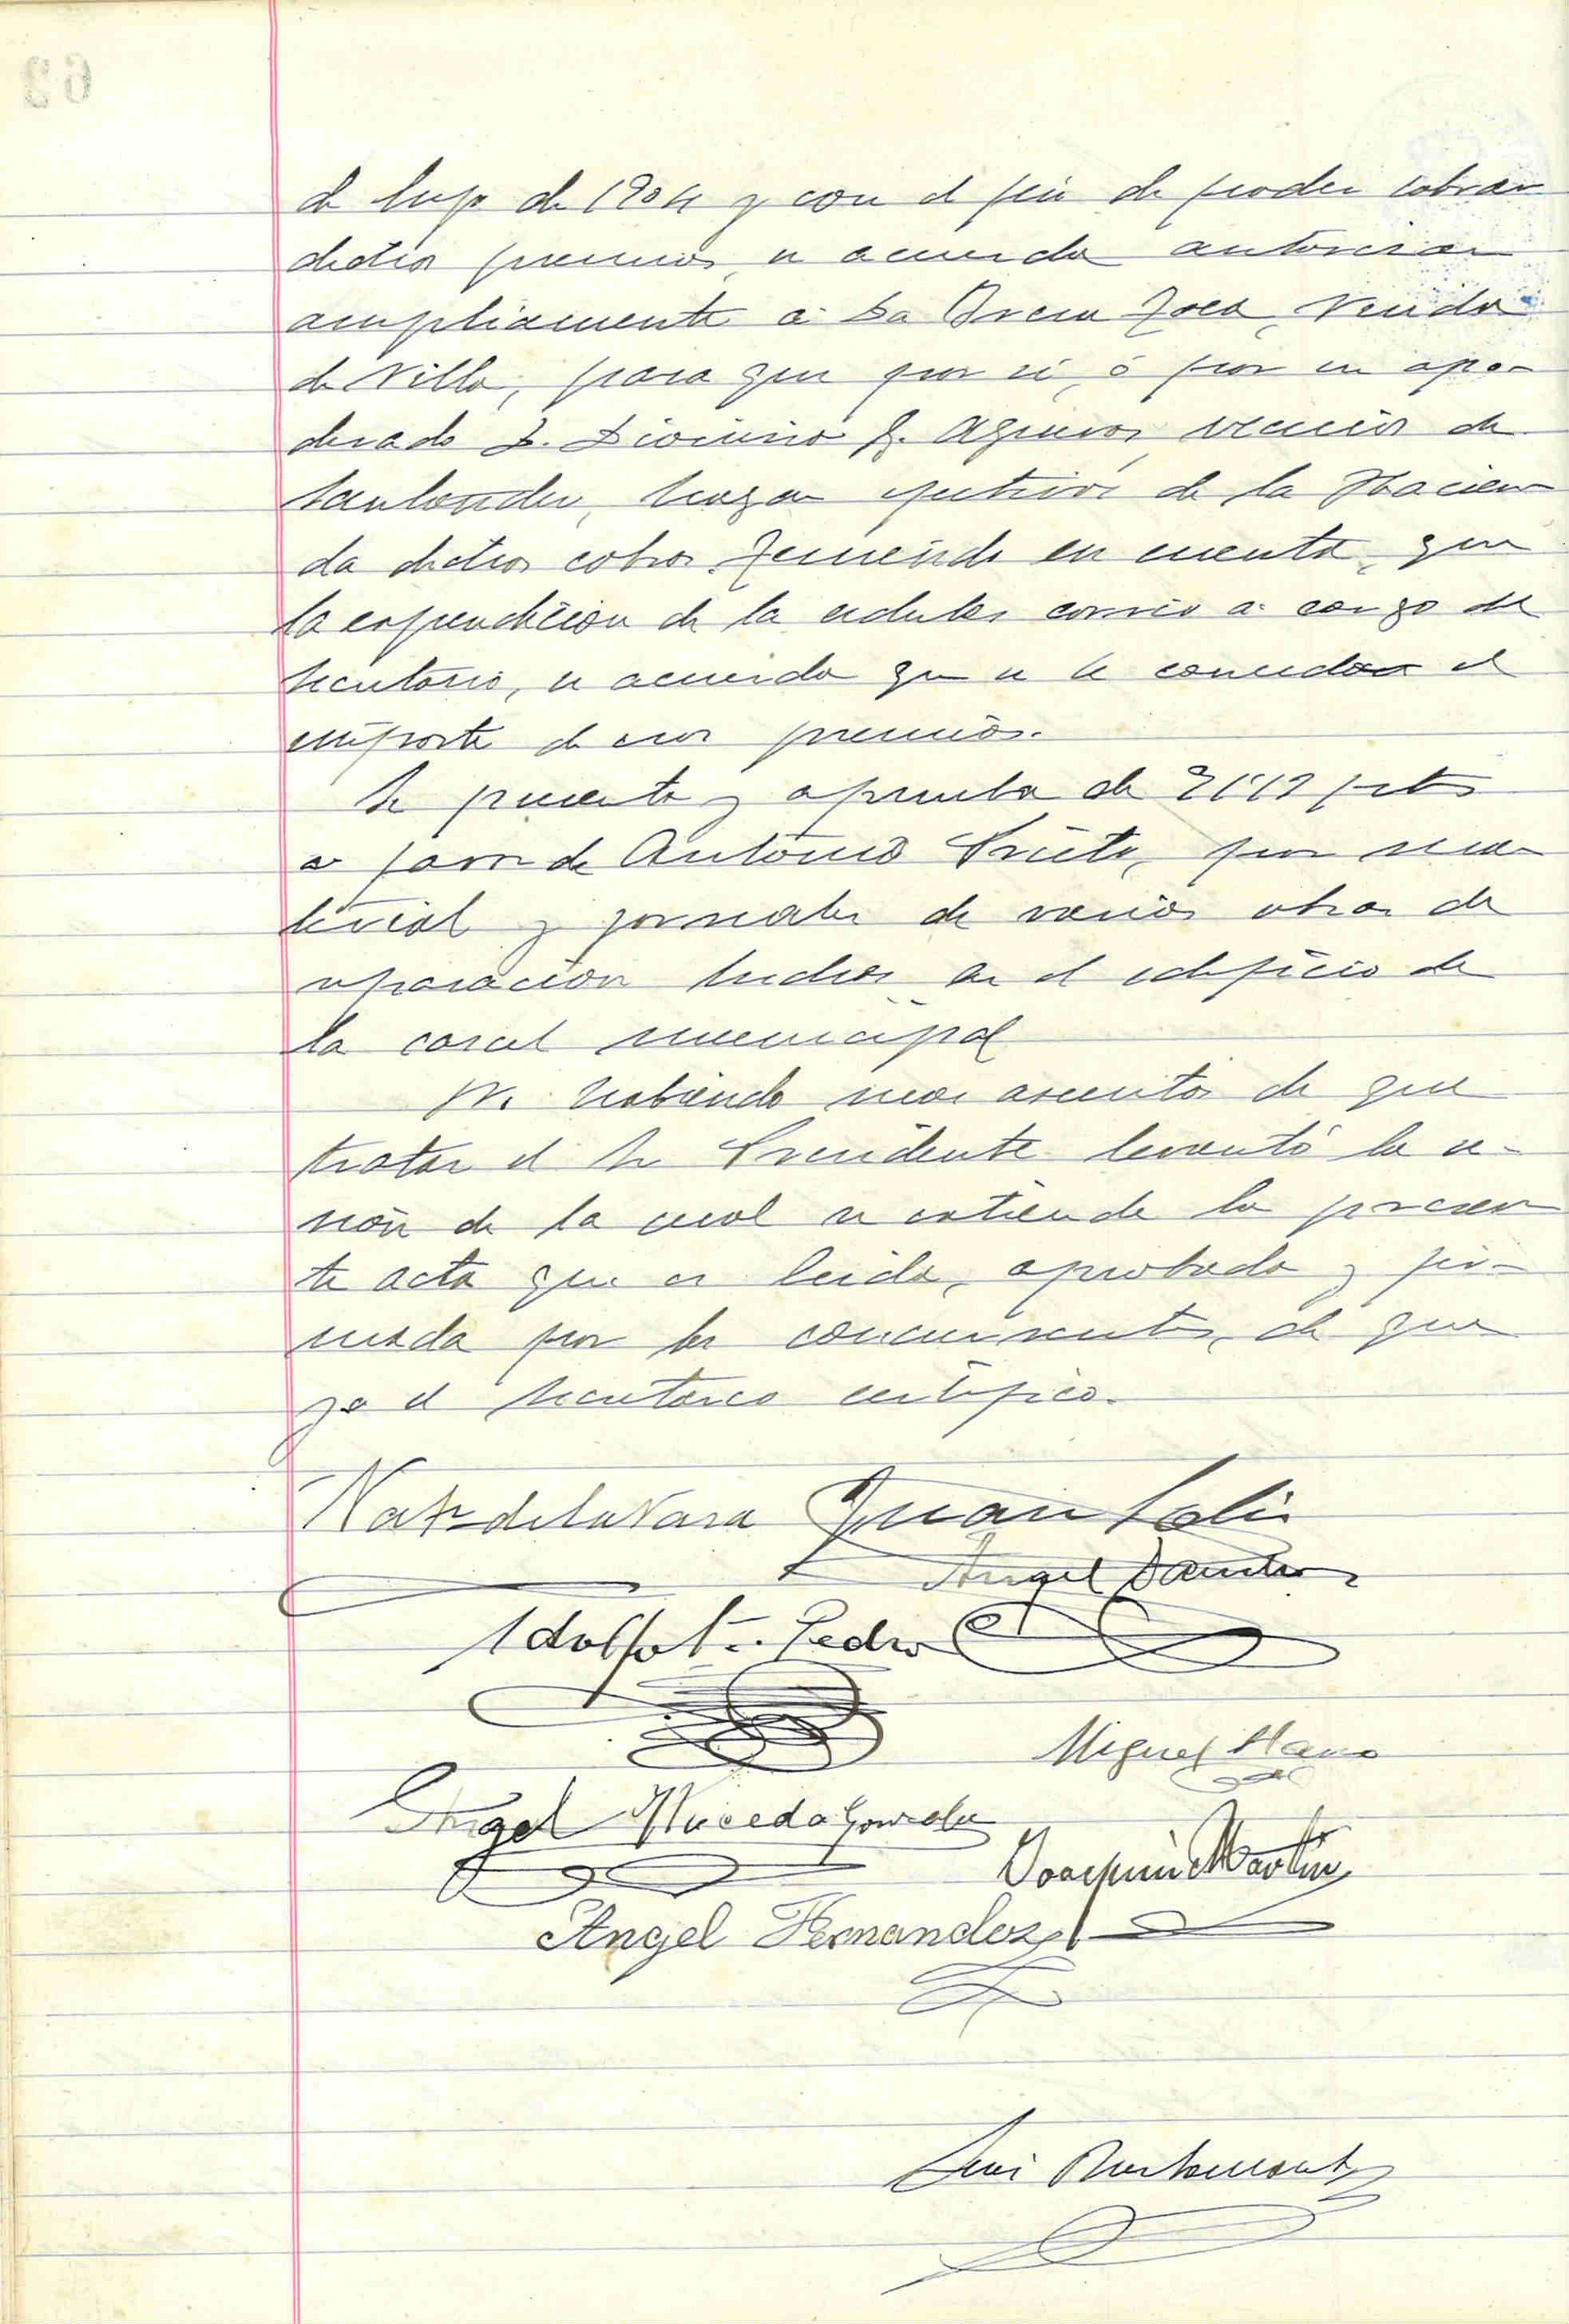 de lujo de 1904 y con el fin de poder cobrar
dichos premios, se acuerda autorizar
ampliamente a Da Viuda
de Villa, para que por si, ó por su apo-
derado D. vecino de
Santander, haga efectivos de la Hacien
da dichos cobros. Teniendo en cuenta, que
la expendición de la cedulas corrió a cargo del
Secretario, se acuerda que se le concedan el
importe de esos premios.
Se presenta y aprueba de pts
a favor de Antonio Prieto, por ma-
terial y jornales de varias obras de
reparación hechas en el edificio de
la carcel municipal
No habiendo mas asuntos de que
tratar el Sr Presidente levantó la se-
sión de la cual se extiende la presen
te acta que es leida, aprobada y fir-
mada por los concurrentes, de que
yo el Secretario certifico.
Juan Solis
Angel Sanchez
Adolfo Pedro
Miguel Llano
Angel Gonzalez
Joaquin Martin
Angel Fernandez
Luis Bustamante